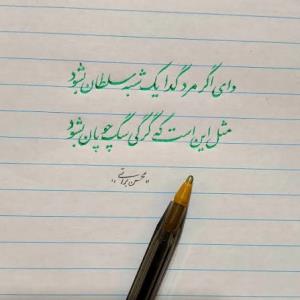 وای اگر مرد گدا یک شبه سلطان بشود
مثل این است که گرگی سگ چوپان بشود
"محسن براتی"